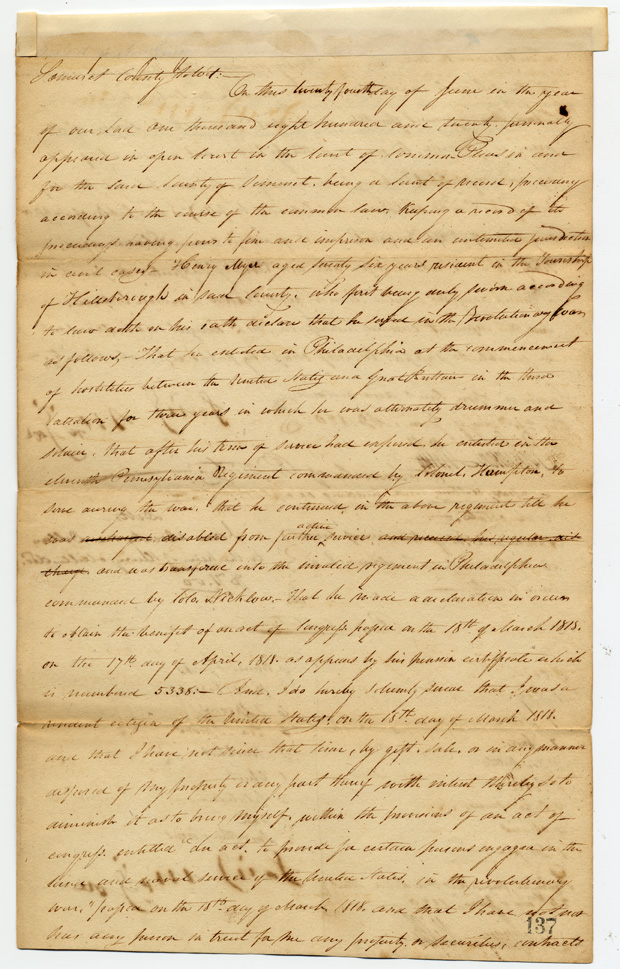 Somerset County to wit:—
On this twenty fourth day of June in the year
of our Lord one thousand eight hundred and twenty, personally
appeared in open Court in the Court of Common Pleas in and
for the said County of Somerset, being a Court of record, proceeding
according to the course of the common law, keeping a record of its
proceedings having power to fine and imprison and an unlimited jurisdiction
in civil cases— Henry Myer aged seventy six years, resident in the Township
of Hillsborough in said County, who first being duly sworn according
to law doth on his oath declare that he served in the Revolutionary War,
as follows,— That he enlisted in Philadelphia at the commencement
of hostilities between the United States and Great Brittain in the third
battalion for three years in which he was alternately drummer and
soldier, that after his term of service had expired he enlisted in the
eleventh Pennsylvania Regiment commanded by Colonel Hampton, to
serve during the war. that he continued in the above regiment till he
was disabled from further active service, and received his regular dis
charge and was transfered into the invalid regiment in Philadelphia
commanded by Colo. — That he made a declaration in order
to obtain the benefit of an act of Congress passed on the 18th of March 1818.
on the 17th day of April, 1818. as appears by his pension certificate which
is numbered 5338:— And, I do hereby solemnly swear that I was a
resident citizen of the United States, on the 18th day of March 1818.
and that I have not since that time, by gift, sale, or in any manner
disposed of my property or any part thereof with intent thereby so to
diminish it as to bring myself within the provisions of an act of
congress entitled "An act, to provide for certain persons engaged in the
land and naval service of the United States, in the revolutionary
war," passed on the 18th day of March, 1818. and that I have not nor
has any person in trust for me any property or securities, contracts
137